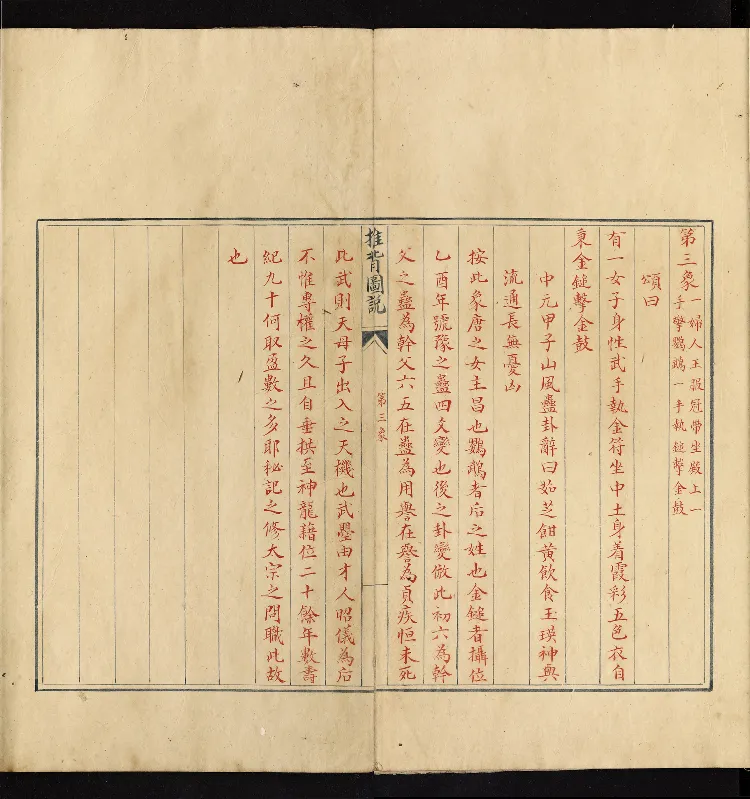 第三象
一婦人王服冠帶坐殿上一
手擎鸚鵡一手執鎚擊金鼓
頌曰
有一女子身性武手執金符坐中土身着霞彩五色衣自
秉金鎚擊金鼓
中元甲子山風蠱卦辭曰茹芝餌黃飲食玉瑛神與
流通長無憂凶
按此象唐之女主昌也鸚鵡者后之姓也金鎚者攝位
乙酉年號豫之蠱四爻變也後之卦變倣此初六為幹
父之蠱為幹父六五在蠱為用譽在豫為貞疾恒未死
推背圖說
第三象
此武則天母子出入之天機也武曌由才人昭儀為后
不惟專權之久且自垂拱至神龍藉位二十餘年數壽
紀九十何取盛數之多耶秘記之修太宗之問職此故
也